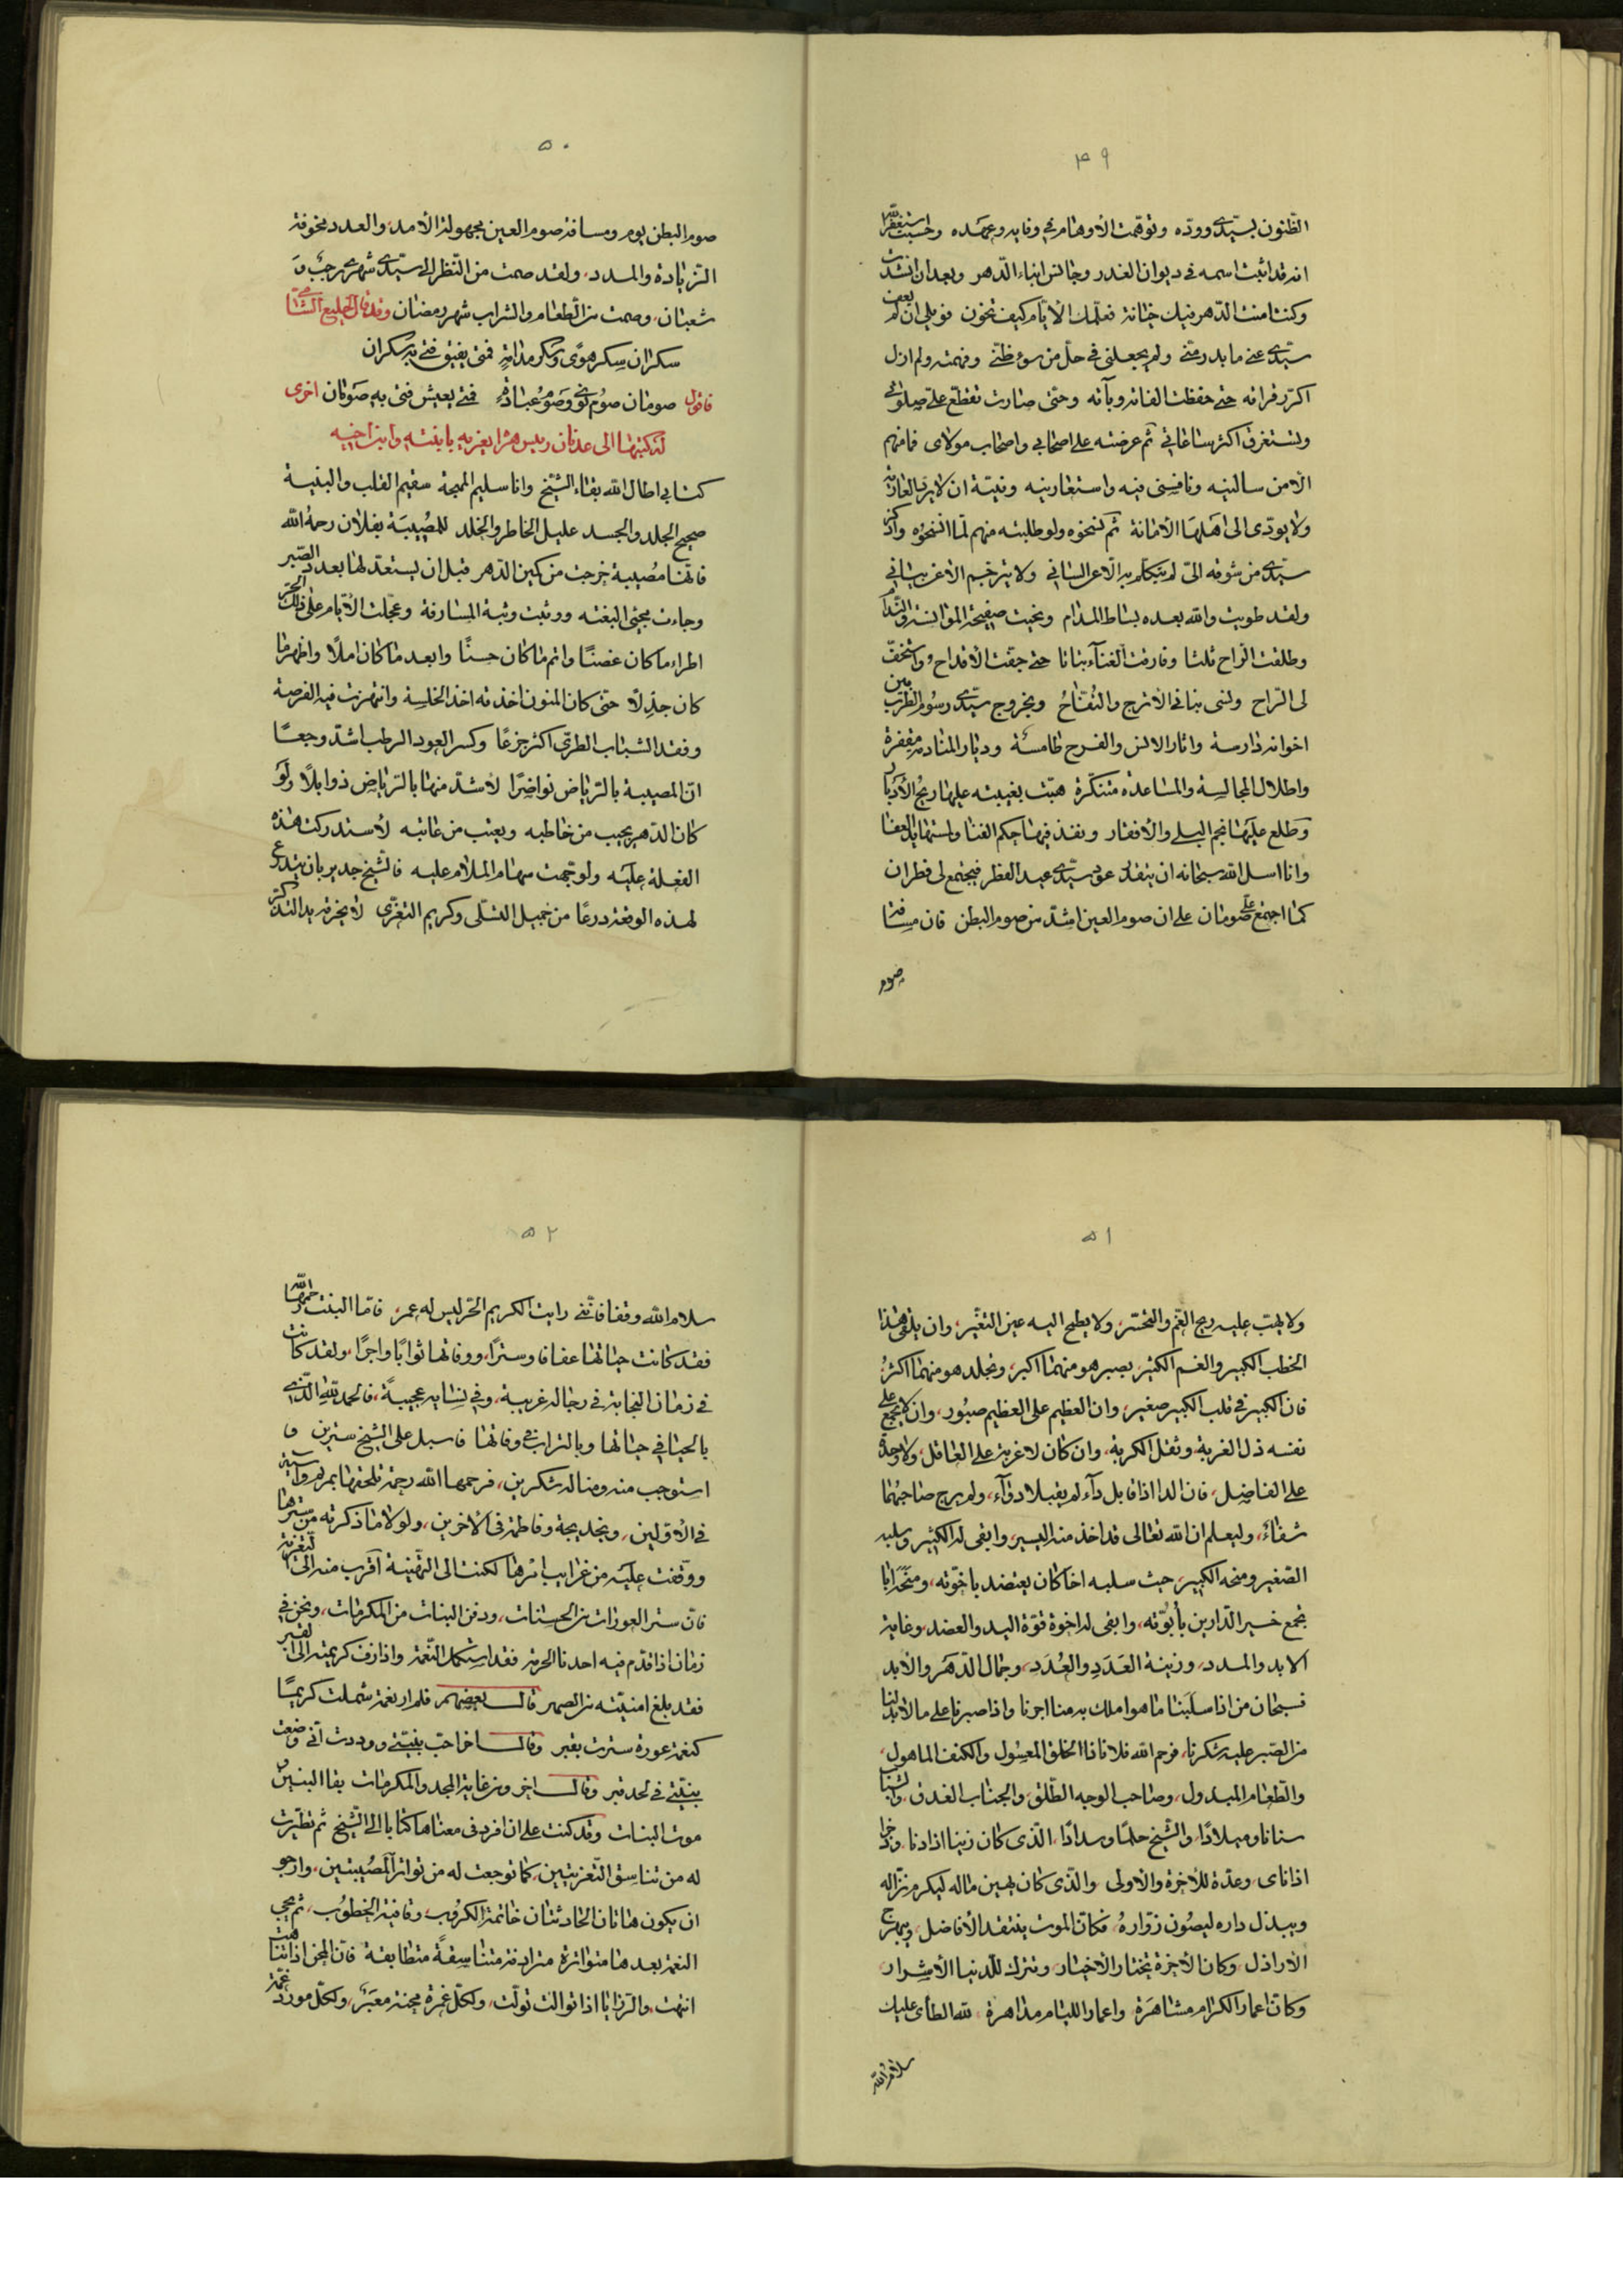 ٤٩
الظنون بسيدى وودّه وتوهمت الأوهام فى وفايه وعهده وحسبت استغفر الله
انه قد اثبت اسمه فى ديوان الغدر وجالس ابناء الدهر وبعد ان انشدت
وكنت امنت الدهر فيك خيانة فعلمك الأيام كيف تخون فويلى ان لم يعف
سيدى عنى ما بدر منى ولم يجعلنى فى حل من سوء ظنى وفهمته ولم ازل
اكرر قرانه حتى حفظت الفاته وبآته وحتى صارت تقطع على صلواتى
وتستغرق اكثر ساعاتى ثم عرضته على اصحابى واصحاب مولاى فما منهم
الا من سالنيه ونافسنى فيه واستعارنيه ونيته ان لا يرد العارية
ولا يودى الى اهلها الأمانة ثم نسخوه ولو طلبته منهم لما انسخوه واذكر
سيدى من شوقه الىّ لم يتكلم به الا عن لسانى ولا يترجم الا عن شانى
ولقد طويت والله بعده بساط المدام ومحيت صفيحة الموانسة والندام
وطلقت الراح ثلثا وفارقت الغناء بتاتا حتى جفت الأقداح واستخفت
لى الراح ونسى بنانى الأترج والتفاح وبخروج سيدى رسوم الطرب بين
اخوانه دارسة واثار الانس والفرح طامسة وديار المنادمة مقفرة
واطلال المجالسة والمساعده متنكرة هبت بغيبته عليها ريح الأدبار
وطلع عليها نجم البلى والأقفار ونفذ فيها حكم الفنا
وانا اسل الله سبحانه ان سيدى عيد الفطر فيجتمع لى فطران
كما اجتمع على صومان على ان صوم العين اشد من صوم البطن فان مسافة
صوم
٥٠
صوم البطن يوم ومسافة صوم العين مجهولة الأمد، والعدد مخوفة
الزيادة والمدد، ولقد صمت من النظر الى سيدى شهرى رجب و
شعبان، وصمت من الطعام والشراب شهر رمضان وقد قال الخليع الشامى
سكران سكر هوى وسكر مدامة فمتى يفيق فتى به سكران
فاقول صومان صوم نوى وصوم عبادة فمتى يعيش فتى به صومان اخرى
له كتبها الى عدنان رييس هراة يعزيه بابنته وابن اخيه
كتابى اطال الله بقاء الشيخ وانا سليم المهجة سقيم القلب والبنية
صحيح الجلد والجسد عليل الخاطر والخلد للمصيبة بفلان رحمه الله
فانها مصيبة خرجت من كمين الدهر قبل ان يستعد لها بعدد الصبر
وجاءت مجئ البغته ووثبت وثبة المسارقة وعجلت الأيام على ذلك الحر
اطراء ما كان غصنًا واتم ما كان حسنًا وابعد ما كان املًا واظهر ما
كان جذلًا حتى كان المنون اخذته اخذ الخلسة وانتهزت فيه الفرصة
وفقد الشباب الطرى اكثر جزعًا وكسر العود الرطب اشد وجعًا
ان المصيبة بالرياض نواضرًا لأشد منها بالرياض ذوابلًا ولو
كان الدهر يجيب من خاطبه ويعتب من عاتبه لأستدركت هذه
الفعلة عليه ولوجهت سهام الملام عليه فالشيخ جدير بان يتدرع
لهذه الوقعة درعًا من جميل التسلى وكريم التعزى لا يخرقه يد التذكر
٥١
ولا يهب عليه ريح الغم والتحسر، ولا يطمح اليه عين التغير، وان يلقى هذا
الخطب الكبير والغم الكثير، بصبر هو منهما اكبر، وتجلد هو منهما اكثر
فان الكبير فى قلب الكبير صغير، وان العظيم على العظيم صبور، وان لا يجمع على
نفسه ذل الغربة وثقل الكربة، وان كان لا غربة على العاقل، ولا وحدة
على الفاضل، فان الدا اذا قابل دآء لم يقبلا دوآء، ولم يرج صاحبهما
شفاءً، وليعلم ان الله تعالى قد اخذ منه اليسير، وابقى له الكثير وسلبه
الصغير ومنحه الكبير، حيث سلبه اخا كان يعتضد باخوته، ومنحه ابا
يجمع خير الدارين بأبوته، وابقى له اخوة قوة اليد والعضد، وغاية
الابد والمدد، وزينة العَدَد والعُدَد، وجمال الدهر والأبد
فسبحان من اذا سلبنا ما هو املك به منا اجرنا واذا صبرنا على ما لابد لنا
من الصبر عليه شكرنا، فرحم الله فلانا ذا الخلق المعسول والكنف الماهول،
والطعام المبذول، وصاحب الوجه الطلق، والجناب الغدق، والشبا
سنانا وميلادًا، والشيخ حلمًا وسدادًا، الذى كان زينا اذا دنا، وذخرا
اذا ناى، وعدة للأخرة والأولى والذى كان يهين ماله ليكرم نزاله
ويبذل داره ليصون زواره، فكان الموت ينتقد الأفاضل، ويبهرج
الأراذل، وكان الأخرة تختار الأخيار، وتترك للدنيا الأشرار،
وكان اعمار الكرام مشاهرة واعمار الليام مداهرة، لله الطأى عليك
سلام الله
٥٢
سلام الله وقفا فاننى رايت الكريم الحر ليس له عمر، فاما البنت رحمها الله
فقد كانت حياتها عفافا وسترًا، ووفاتها ثوابًا واجرًا، ولقد كانت
فى زمان النجابة فى رجاله غريبة، وفى نسايه عجيبةً، فالحمد لله الذى
بالحيا فى حياتها وبالتراب فى وفاتها فاسبل على الشيخ سترين و
استوجب منه ومنا له شكرين، فرحمها الله رحمة تلحقها بمريم واسية
فى الأولين، وبخديجة وفاطمة فى الأخرين، ولولا ما ذكرته من سترها
ووقفت عليه من غرايب امرها لكنت الى التهنية اقرب منه الى التعزية
فان ستر العورات من الحسنات، ودفن البنات من المكرمات، ونحن فى
زمان اذا قدم فيه احدنا الحرمة فقد استكمل النعمة واذا زف كريمته الى القبر
فقد بلغ امنيته من الصهر قال بعضهم ولم ار نعمة شملت كريمًا
كنعمة عورة سترت بقبر وقال اخر احب بنيتى ووددت انى وضعت
بنيتى فى لحد قبر وقال اخر ومن غاية المجد والمكرمات بقا البنين
موت البنات وقد كنت على ان افرد فى معناها كتابا الى الشيخ ثم تطيرت
له من تناسق التعزيتين، كما توجعت له من تواتر المصيبتين، وارجو
ان يكون هاتان الحادثتان خاتمة الكروب، وقافية الخطوب، ثم يجى
النعم بعدها متواترة مترادفة متناسقةً متطابقة فان المحن اذا تناهت
انتهت، والرزايا اذا توالت تولت، ولكل غمرة محنة معبر، ولكل مورد